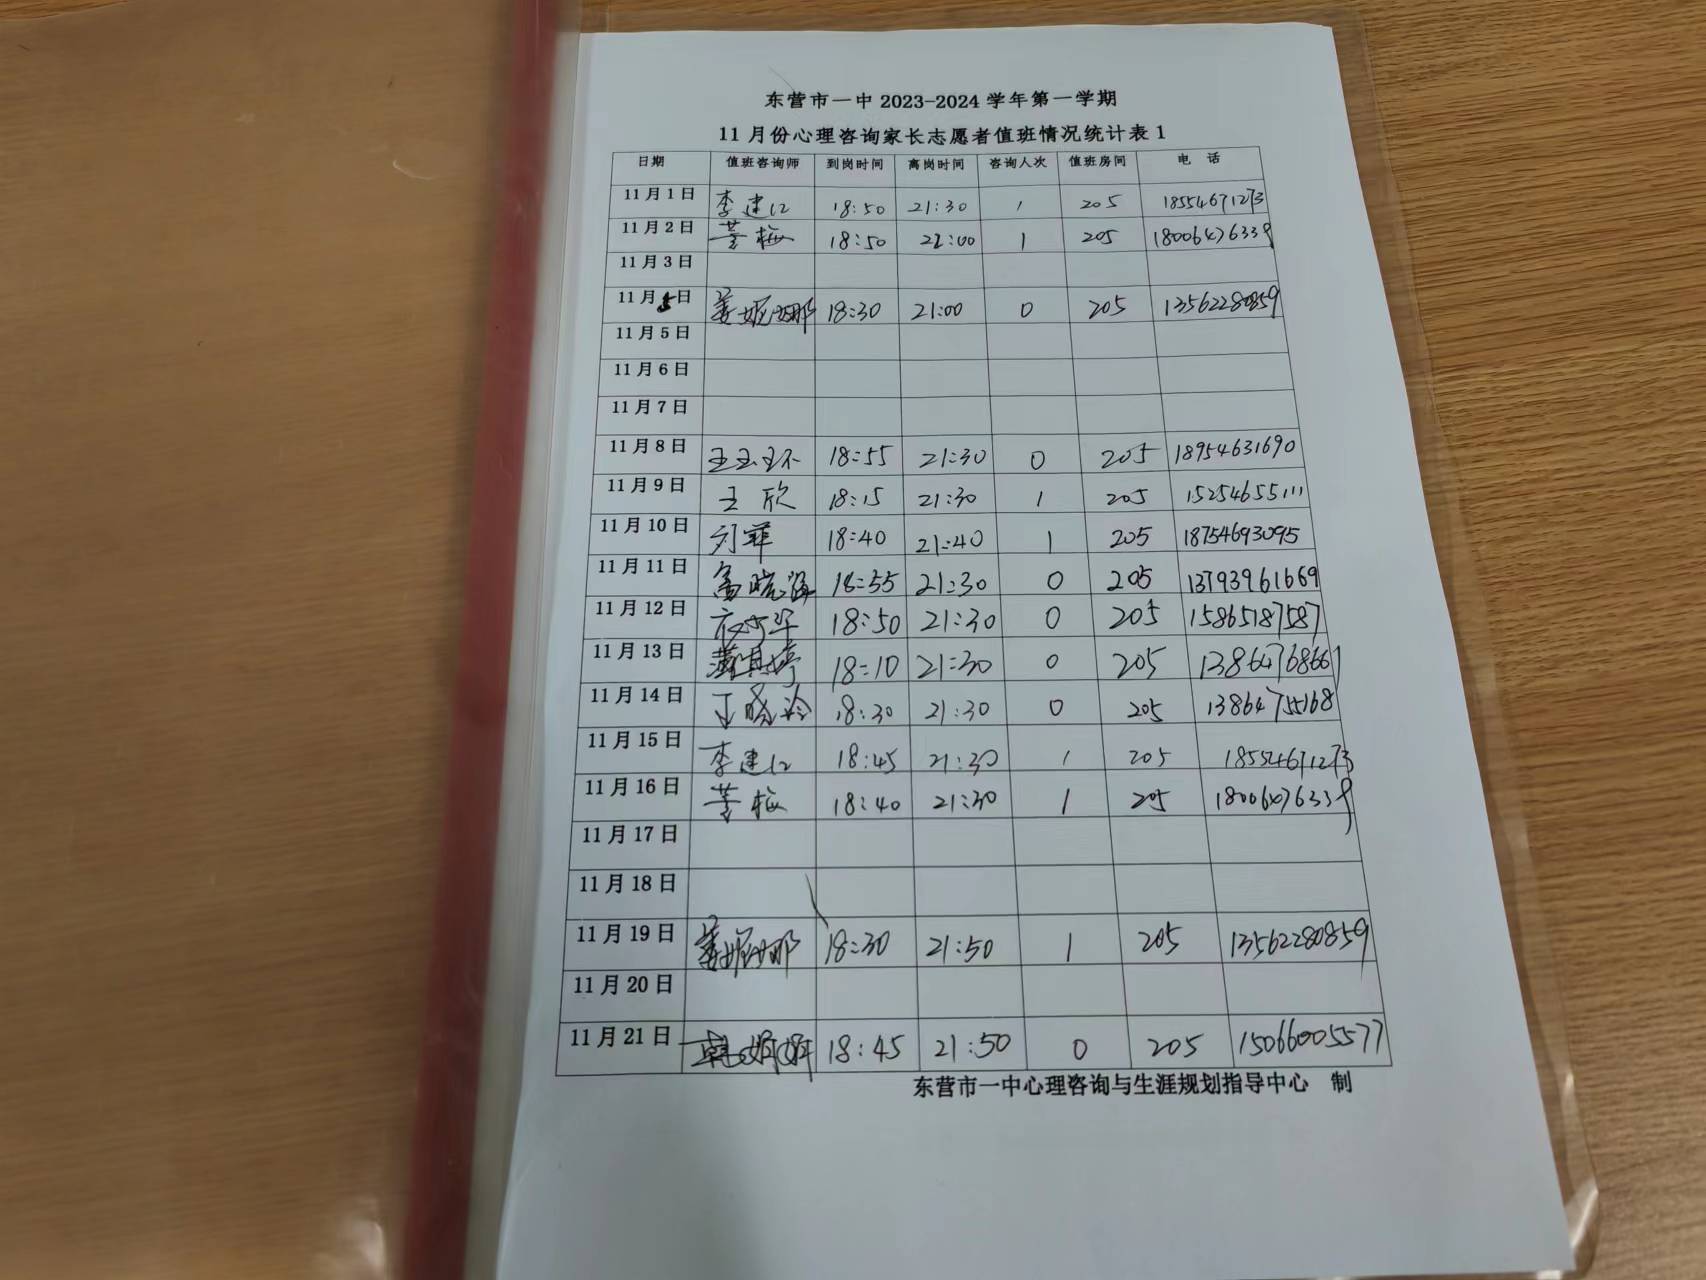 东营市一中 2023-2024 学年第一学期
11 月份心理咨询家长志愿者值班情况统计表 1
日期 值班咨询师 到岗时间 离岗时间 咨询人次 值班房间 电 话
11 月 1 日 李建 18:50 21:30 1 205 18554671273
11 月 2 日 董梅 18:50 22:00 1 205 18006476339
11 月 3 日
11 月 5 日 姜妮娜 18:30 21:00 0 205 13562280859
11 月 5 日
11 月 6 日
11 月 7 日
11 月 8 日 王玉环 18:55 21:30 0 205 18954631690
11 月 9 日 王欣 18:15 21:30 1 205 15254655111
11 月 10 日 刘菲 18:40 21:40 1 205 18754693095
11 月 11 日 18:55 21:30 0 205 13793961669
11 月 12 日 18:50 21:30 0 205 15865187587
11 月 13 日 18:10 21:30 0 205 13864768661
11 月 14 日 丁晓玲 18:30 21:30 0 205 13864755168
11 月 15 日 李建 18:45 21:30 1 205 18554671273
11 月 16 日 董梅 18:40 21:30 1 205 18006476339
11 月 17 日
11 月 18 日
11 月 19 日 姜妮娜 18:30 21:50 1 205 13562280859
11 月 20 日
11 月 21 日 韩婷婷 18:45 21:50 0 205 15066005577
东营市一中心理咨询与生涯规划指导中心 制